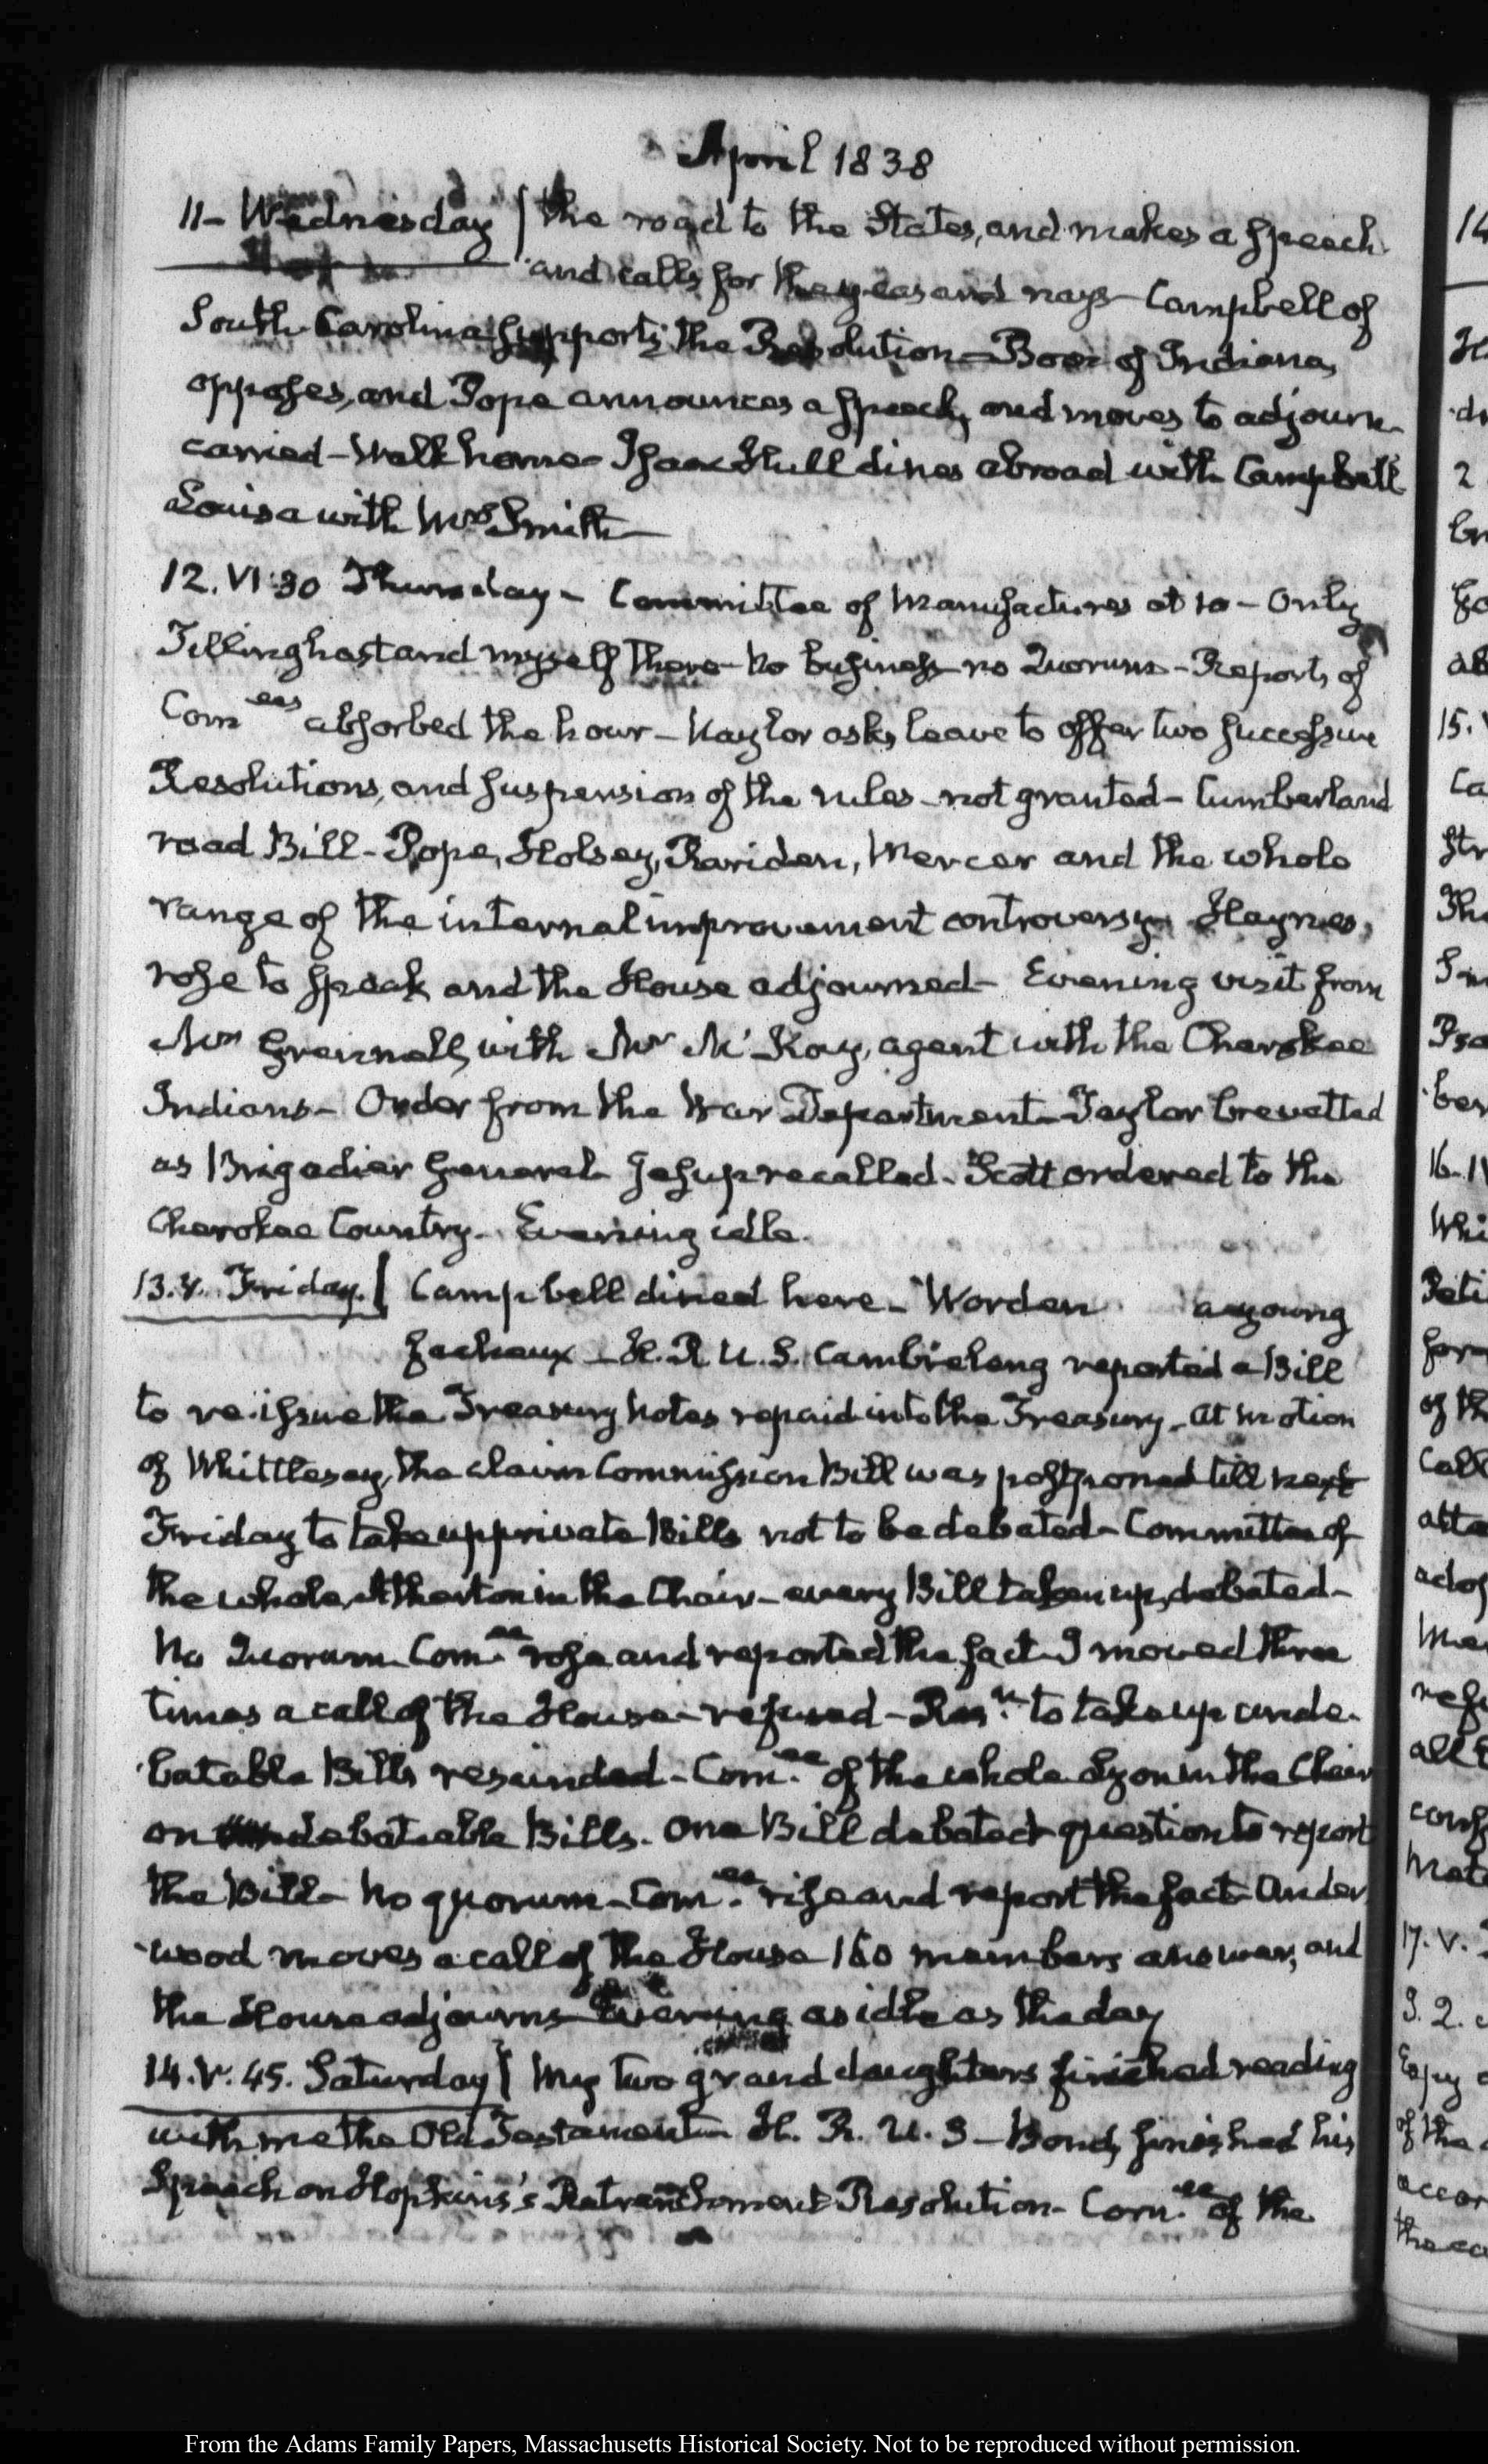 April 1838
11- Wednesday | the road to the States, and makes a speech
and calls for the yeas and nays - Campbell of
South-Carolina supports the Resolution - Boon of Indiana,
opposes, and Pope announces a speech, and moves to adjourn-
carried - Walk home - Isaac Hull dines abroad with Campbell
Louisa with Mrs Smith-
12. VI:30 Thursday - Committee of Manufactures at 10 - Only
Tillinghast and myself there - No business - no Quorum - Reports of
Com ees absorbed the hour - Naylor asks leave to offer two successive
Resolutions, and suspension of the rules - not granted - Cumberland
road Bill - Pope, Holsey, Rariden, Mercer and the whole
range of the internal improvement controversy. Haynes,
rose to speak and the House adjourned - Evening visit from
Mr Grennell, with Mr McKay, agent with the Cherokee
Indians - Order from the War Department - Taylor brevetted
as Brigadier General - Jesup recalled - Scott ordered to the
Cherokee Country. Evening idle.
13. V. Friday. | Campbell dined here - Worden a young
Zacheaux - H. R. U. S. Cambreleng reported a Bill
to re-issue the Treasury Notes repaid into the Treasury - At motion
of Whittlesey, the claim Commission Bill was postponed till next
Friday to take up private Bills not to be debated - Committee of
the whole, Atherton in the Chair - every Bill taken up, debated -
No Quorum Com.ee rose and reported the fact - I moved three
times a call of the House - refused - Res.n to take up unde-
batable Bills rescinded - Com.ee of the whole Lyon in the Chair
on debateable Bills. One Bill debated question to report
the Bill - No quorum - Com.ee rise and report the fact - Under
wood moves a call of the House 160 members answer, and
the House adjourns - Evening as idle as the day
14. V. 45. Saturday | My two grand daughters finished reading
with me the Old Testament - H. R. U. S - Bond, finished his
Speech on Hopkins's Retrenchment Resolution - Com.ee of the
From the Adams Family Papers, Massachusetts Historical Society. Not to be reproduced without permission.